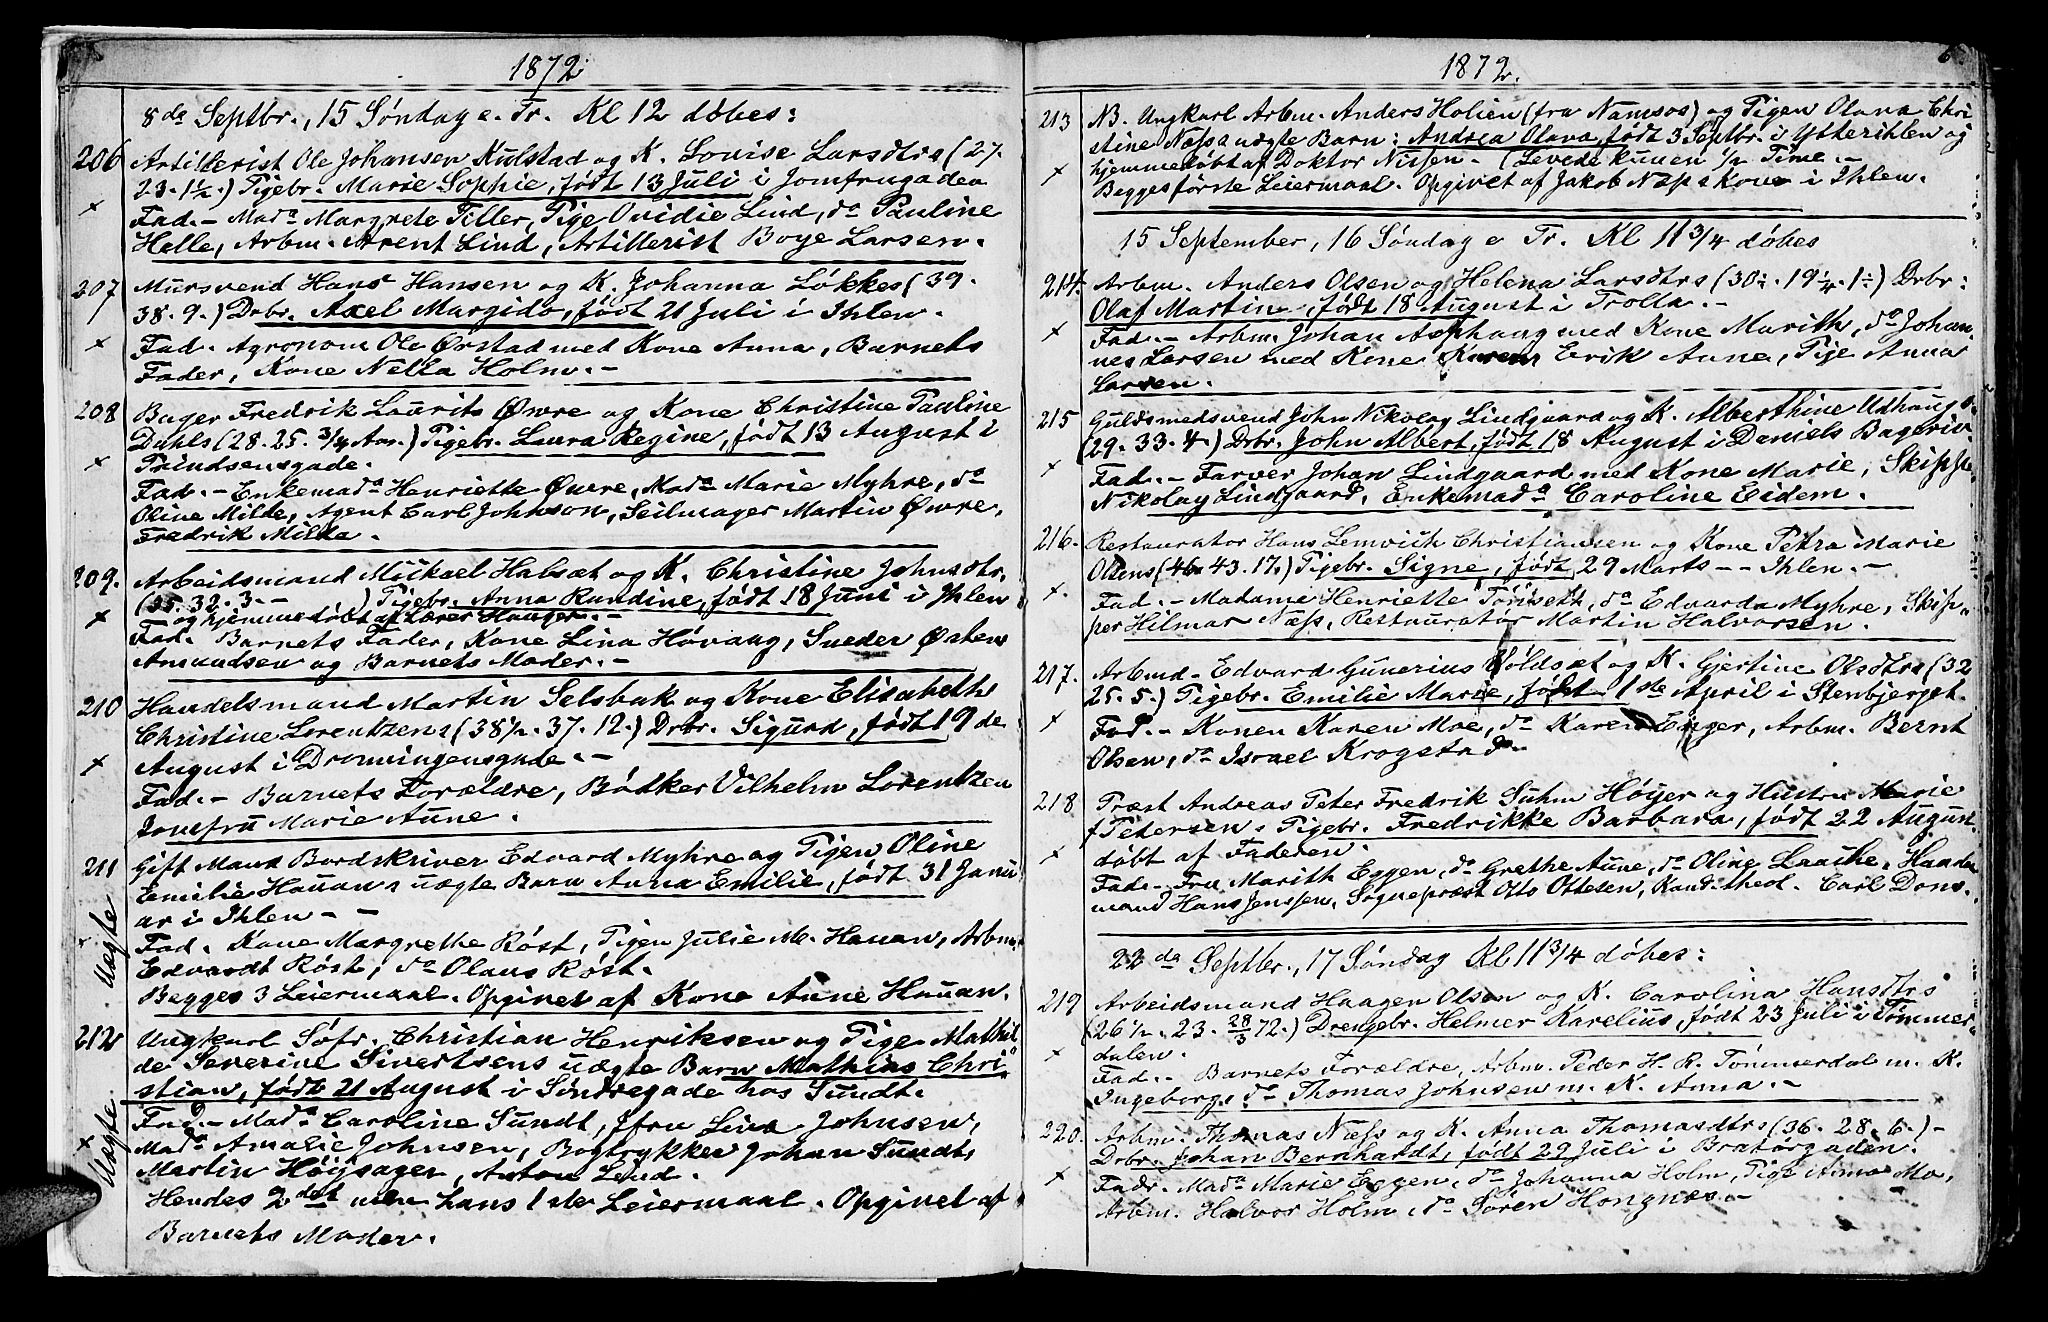 1872
8de Septbr., 15 Søndag e. Tr. Kl 12 døbes:
206 Artillerist Ole Johansen Kulstad og K. Lovise Larsdtrs (27.
23. 1½.) Pigebr. Marie Sophie, født 13 Juli i Jomfrugaden
× Fad. – Mada Margrete Tiller, Pige Ovidie Lind, do Pauline
Helle, Arbm. Arent Lind, Artillerist Boye Larsen.
207 Mursvend Hans Hansen og K. Johanna Løkkes (39.
38. 9.) Drbr. Axel Margido, født 21 Juli i Ihlen.
× Fad. Agronom Ole Ørstad med Kone Anna, Barnets
Fader, Kone Nella Holm. –
208 Bager Fredrik Laurits Øwre og Kone Christine Pauline
Dahls (28. 25. 3/4 Aar.) Pigebr. Laura Regine, født 13 August i
× Prindsensgade.
Fad. – Enkemada Henriette Øwre, Mada Marie Myhre, do
Oline Milde, Agent Carl Johnson, Seilmager Martin Øwre,
Fredrik Milde.
209. Arbeidsmand Mickael Halsæt og K. Christine Johnsdtr.
(35. 32. 3. – ) Pigebr. Anna Randine, født 18 Juni i Ihlen
× og hjemmedøbt af Lærer Hauger. –
Fad. Barnets Fader, Kone Lina Høvaag, Snedker Østen
Amundsen og Barnets Moder. –
210 Handelsmand Martin Selsbak og Kone Elisabeth
Christine Lorentzens (38½. 37. 12.) Drbr. Sigurd, født 19de
× August i Dronningensgade. –
Fad. – Barnets Forældre, Bødker Vilhelm Lorentzen
Jomfru Marie Aune.
211 Gift Mand Bordskriver Edvard Myhre og Pigen Oline
Emilie Hauans uægte Barn Anna Emilie, født 31 Janu
ar i Ihlen – –
× Uægte Fad. Kone Margrethe Røst, Pigen Julie M. Hauan, Arbm.
Edvardt Røst, do Olaus Røst.
Begges 3 Leiermaal. Opgivet af Kone Anne Hauan.
212 Ungkarl Søfr. Christian Henriksen og Pige Mathil
de Severine Sivertsens uægte Barn Mathias Chri
stian, født 21 August i Søndregade hos Sundt.
× Uægte Fad. – Mada Caroline Sundt, Jfru Lina Johnsen,
Mada Amalie Johnsen, Bogtrykker Johan Sundt,
Martin Høysager, Anton Lind.
Hendes 2det men hans 1ste Leiermaal. Opgivet af
Barnets Moder.
1872.
213 NB. Ungkarl Arbm. Anders Holien (fra Namsos) og Pigen Olava Chri
stine Næss uægte Barn: Andrea Olava, født 3 Septbr. i Ytterihlen og
× hjemmedøbt af Doktor Nissen. – (Levede kuuen ½ Time. –
Begges første Leiermaal. Opgivet af Jakob Næss Kone i Ihlen.
15 September, 16 Søndag e Tr. Kl 11 3/4 døbes
214. Arbm. Anders Olsen og Helena Larsdtrs (30½. 19¼. 1½) Drbr:
Olaf Martin, født 18 August i Trolla. –
× Fad. – Arbm. Johan Asphaug med Kone Marith, do Johan
nes Larsen med Kone Karen Erik Aune, Pige Anna
Larsen.
215 Guldsmedsvend John Nikolay Lindgaard og K. Alberthine Udhaugs
(29. 33. 4) Drbr. John Albert, født 18 August i Daniels Bageriv.
× Fad. – Farver Johan Lindgaard med Kone Marie, Skippe
Nikolay Lindgaard, Enkemada Caroline Eidem.
216. Restauratør Hans Lemvich Christiansen og Kone Petra Marie
Olsens (46. 43. 17.) Pigebr. Signe, født 29 Marts – – Ihlen. –
×. Fad. – Madame Henriette Tørisett, do Edvarda Myhre, Skip
per Hilmar Næss, Restauratør Martin Halvorsen.
217. Arbmd – Edvard Gunerius Voldsæt og K. Gjertine Olsdtrs (32
25. 5.) Pigebr. Emilie Marie, født 1ste April i Stenbjerget.
× Fad. – Konen Karen Moe, do Karen Enger, Arbm. Bernt
Olsen, do Israel Krogstad –
218 Præst Andreas Peter Fredrik Suhm Høyer og Hustru Marie
f Petersens Pigebr. Fredrikke Barbara, født 22 August
× døbt af Faderen.
Fad. – Fru Marith Eggen, do Grethe Aune, do Oline Laache, Handels
mand Hans Jenssen, Sognepræst Otto Ottesen, Kand. theol. Carl Dons.
22de Septbr., 17 Søndag Kl 11 3/4 døbes:
219 Arbeidsmand Haagen Olsen og K. Carolina Hansdtrs
(26½. 23. 28/3 72.) Drengebr. Helmer Karelius, født 23 Juli i Tømmer
× dalen.
Fad. – Barnets Forældre, Arbm. Peder H. R. Tømmerdal m. K.
Ingeborg, do Thomas Johnsen m. K. Anna. –
220. Arbm. Thomas Næss og K. Anna Thomasdtrs (36. 28. 6.) –
Drbr. Johan Bernhardt, født 29 Juli i Bratørgaden.
× Fadr. Mada Marie Eggen, do Johanna Holm, Pige Anna Mo,
Arbm. Halvor Holm, do Søren Hongnæs. –